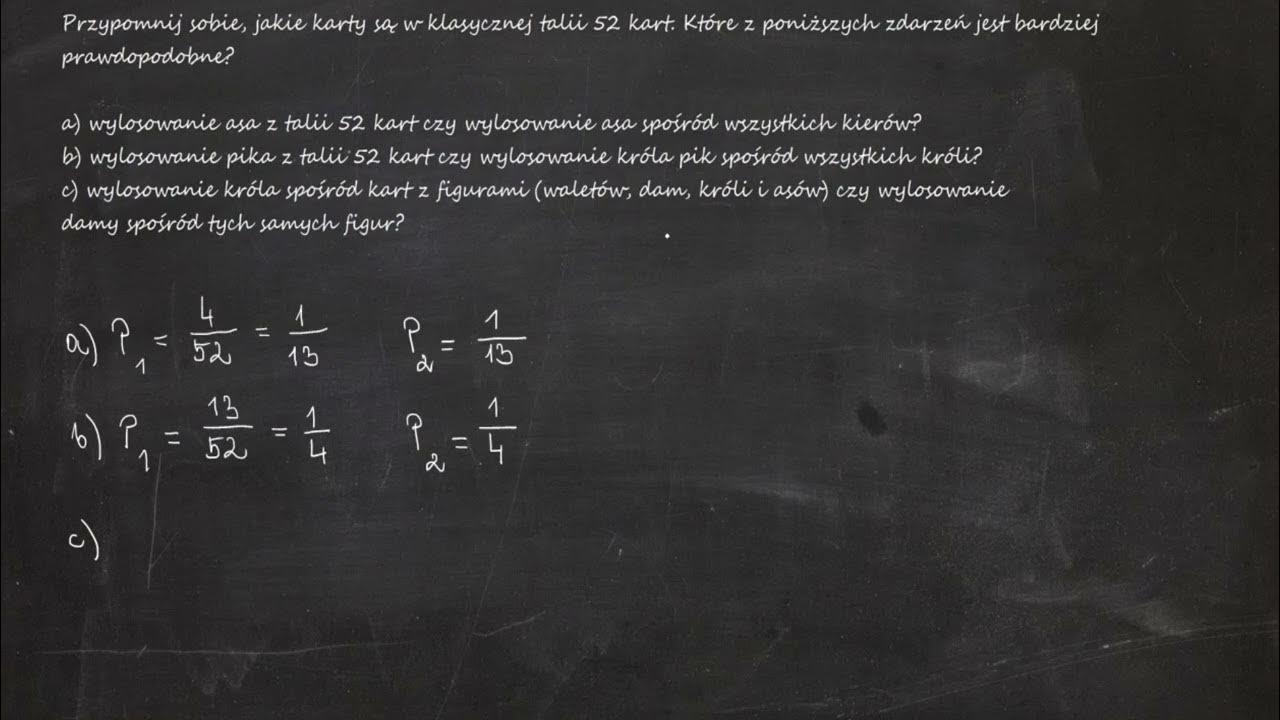 Przypomnij sobie, jakie karty są w klasycznej talii 52 kart. Które z poniższych zdarzeń jest bardziej
prawdopodobne?
a) wylosowanie asa z talii 52 kart czy wylosowanie asa spośród wszystkich kierów?
b) wylosowanie pika z talii 52 kart czy wylosowanie króla pik spośród wszystkich króli?
c) wylosowanie króla spośród kart z figurami (waletów, dam, króli i asów) czy wylosowanie
damy spośród tych samych figur?
a) P₁ = 4/52 = 1/13 P₂ = 1/13
b) P₁ = 13/52 = 1/4 P₂ = 1/4
c)